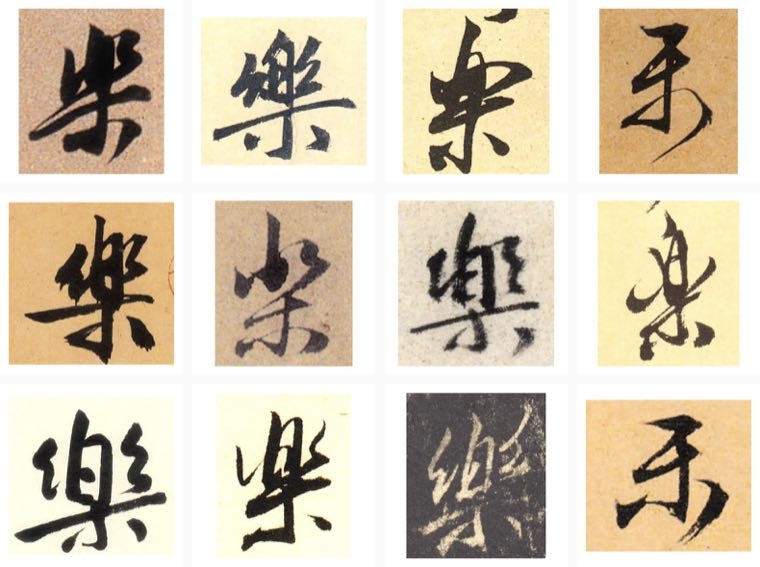 樂 樂 樂 樂
樂 樂 樂 樂
樂 樂 樂 樂